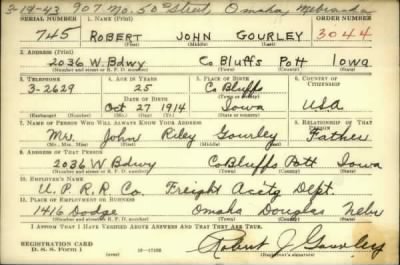 3-19-43 907 No. 50th Street, Omaha Nebraska
SERIAL NUMBER 1. NAME (Print) ORDER NUMBER
745 ROBERT JOHN GOURLEY 3044
(First) (Middle) (Last)
2. ADDRESS (Print)
2036 W. Bdwy Co Bluffs Pott Iowa
(Number and street or R. F. D. number) (Town) (County) (State)
3. TELEPHONE 4. AGE IN YEARS 5. PLACE OF BIRTH 6. COUNTRY OF CITIZENSHIP
3-2629 25 Co Bluffs
DATE OF BIRTH (Town or county)
Oct 27 1914 Iowa USA
(Mo.) (Day) (Yr.) (State or country)
7. NAME OF PERSON WHO WILL ALWAYS KNOW YOUR ADDRESS 8. RELATIONSHIP OF THAT PERSON
Mr. John Riley Gourley Father
(Mr., Mrs., Miss) (First) (Middle) (Last)
9. ADDRESS OF THAT PERSON
2036 W. Bdwy Co Bluffs Pott Iowa
(Number and street or R. F. D. number) (Town) (County) (State)
10. EMPLOYER'S NAME
U. P. R. R Co. Freight Acctg Dept.
11. PLACE OF EMPLOYMENT OR BUSINESS
1416 Dodge Omaha Douglas Nebr
(Number and street or R. F. D. number) (Town) (County) (State)
I AFFIRM THAT I HAVE VERIFIED ABOVE ANSWERS AND THAT THEY ARE TRUE.
REGISTRATION CARD
D. S. S. Form 1 16-17105 Robert J. Gourley
(Registrant's signature)